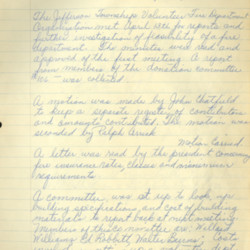 The Jefferson Township Volunteer Fire Department
Organization met April 16th for reports and
further investigation of feasibility of a fire
department. The minutes were read and
approved of the first meeting. A report
from members of the donation committee
was called.
A motion was made by John Hatfield
to keep a separate registry of contributors
and amounts contributed. The motion was
seconded by Ralph
Motion Carried
A letter was read by the president concerning
fire insurance rates, classes and minimum
requirements
A committee was set up to look into
building specifications and cost of building
materials to report back at next meeting
Members of this committee are: Wilbert
Williams, Ed Bobbitt, Walter